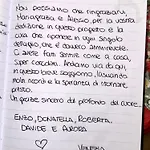 Noi possiamo che ringraziarvi,
Mariagrazia e Alessio, per la vostra
dedizione in questo progetto e la
cura che ponete in ogni singolo
dettaglio, che è davvero ammirevole.
Ci avete fatti sentire come a casa,
super coccolati. Andiamo via da qui,
in questo breve soggiorno, lasciando
nei nostri la speranza di ritornare
presto.
Un grazie sincero dal profondo del cuore.
ENZO, DONATELLA, ROBERTA,
DAVIDE E AURORA